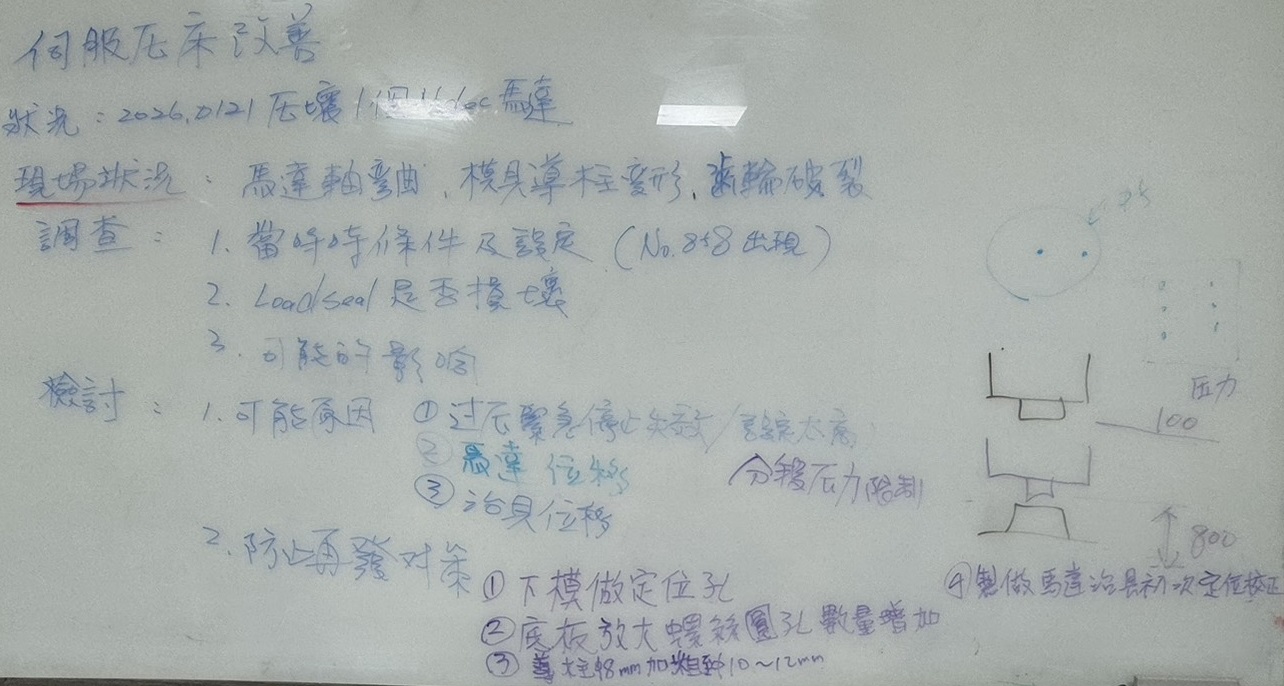 伺服压床改善
狀況：2026.0121 压壞1個 馬達
現場狀況：馬達軸彎曲、模具導柱变形、齒輪破裂
調查：1. 當時条件及設定（No.858出現）
2. Load/seal 是否損壞
3. 可能的影响
檢討：1. 可能原因 ①过压緊急停止失效/設定太高
②馬達位移 分段压力限制
③治具位移
2. 防止再發对策
①下模做定位孔
②底板放大螺絲圓孔數量增加
③導柱φ8mm加粗到10～12mm
压力
100
800
④製做馬達治具初次定位校正